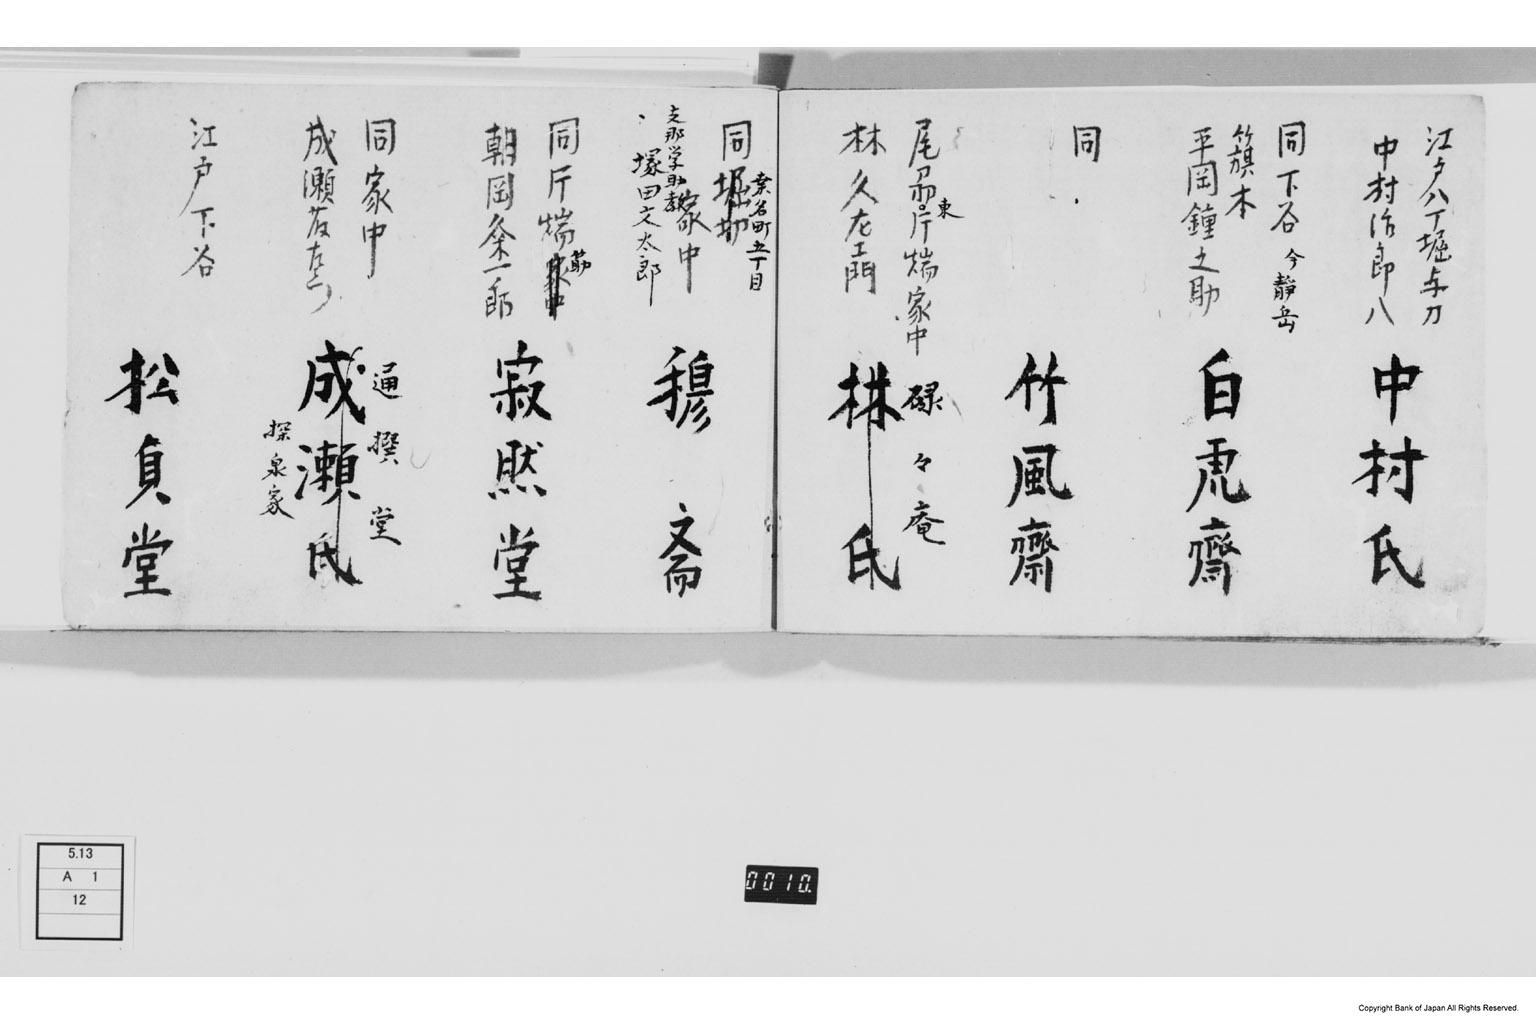 江戸八丁堀与力
中村治郎八
中村氏
同下谷 今靜岳
竹籏本
平岡鐘之助
白虎齋
同
竹風齋
尾羽東片端家中
林久左エ門
碌々庵
林氏
桒名町五丁目
同堀切家中
支那学助教
塚田文太郎
穆斎
同片端筋家中
朝岡粂一郎
寂然堂
同家中
成瀬
通撰堂
成瀬氏
探泉家
江戸下谷
松貞堂
5.13
A 1
12
0010.
Copyright Bank of Japan All Rights Reserved.